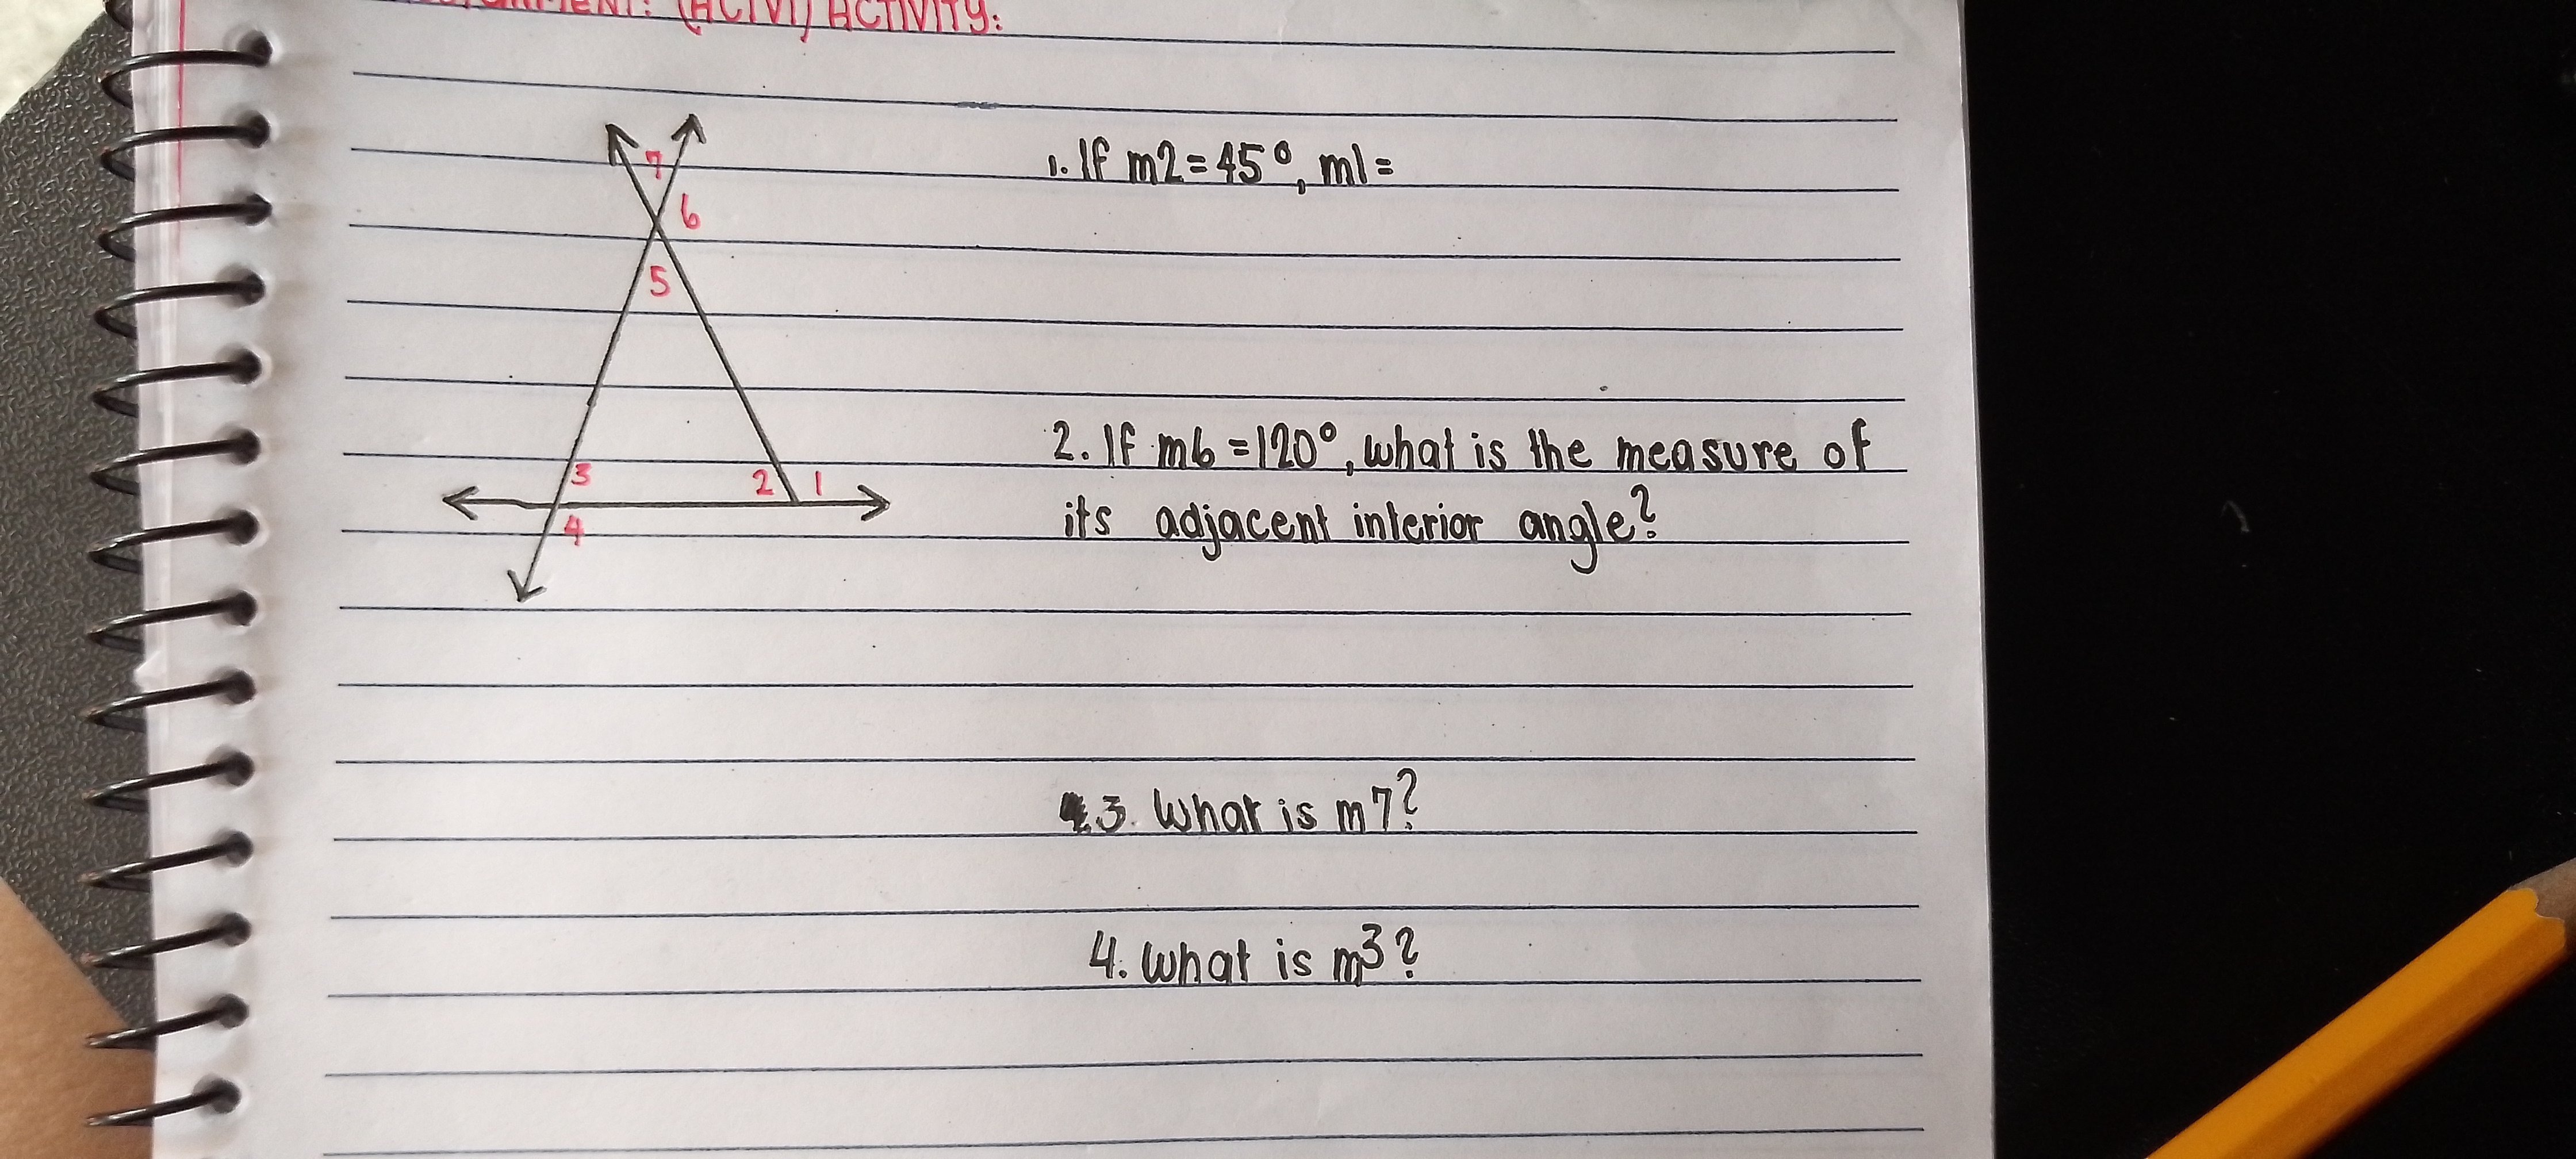 (ACTVI) ACTIVITY:
7
6
5
3
2 1
4
1. If m2 = 45°, m1 =
2. If m6 = 120°, what is the measure of
its adjacent interior angle?
3. What is m7?
4. What is m3?